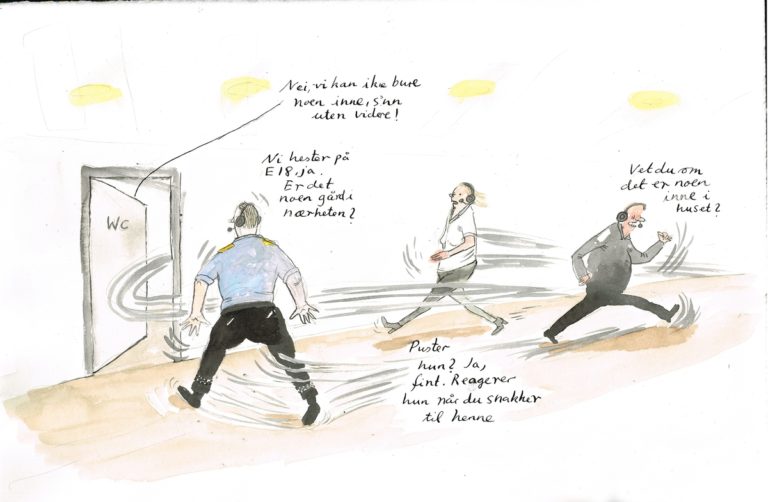 Nei, vi kan ikke bure
noen inne, s'nn
uten videre!
Ni hester på
E18, ja.
Er det
noen gård i
nærheten?
Vet du om
det er noen
inne i
huset?
WC
Puster
hun? Ja,
fint. Reagerer
hun når du snakker
til henne